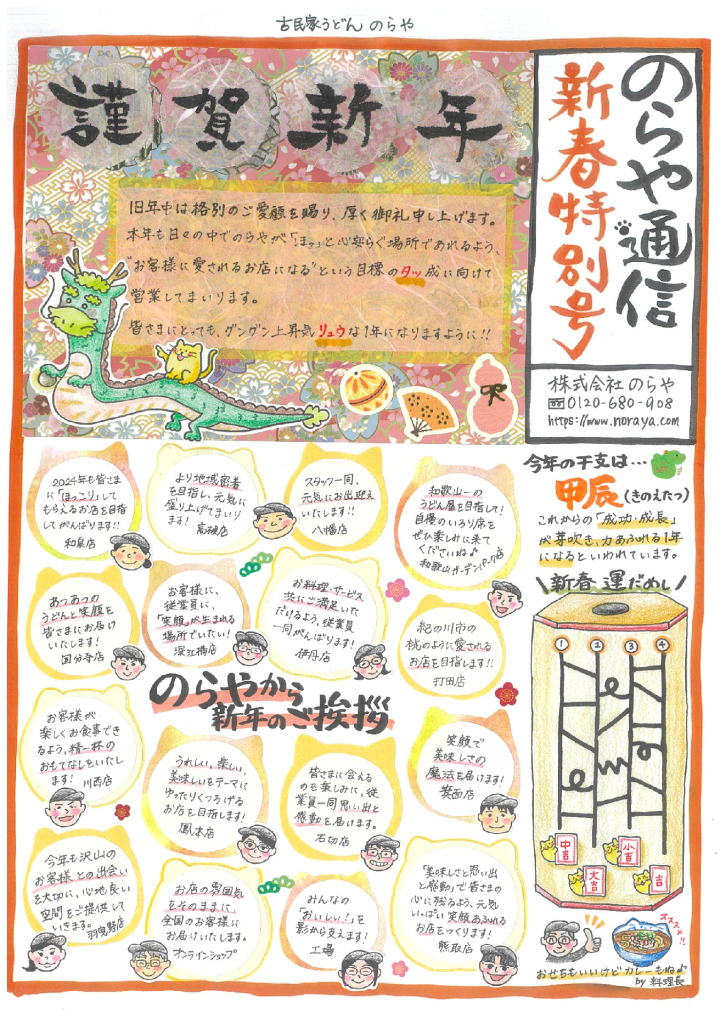 古民家うどん のらや
謹賀新年
旧年中は格別のご愛顧を賜り、厚く御礼申し上げます。
本年も日々の中でのらやが「ほっ」と心安らぐ場所であれるよう、
"お客様に愛されるお店になる"という目標のタッ成に向けて
営業してまいります。
皆さまにとっても、グングン上昇気リュウな1年になりますように!!
のらや通信
新春特別号
株式会社 のらや
0120-680-908
https://www.noraya.com
2024年も皆さま
に「ほっこり」して
もらえるお店を目指
してがんばります!!
和泉店
より地域密着
を目指し、元気に
盛り上げてまいり
ます!
高槻店
スタッフ一同、
元気にお出迎え
いたします!!
八幡店
和歌山一の
うどん屋を目指して!
自慢のいろり席を
ぜひ楽しみに来て
くださいね♪
和歌山ガーデンパーク店
あつあつの
うどんと笑顔を
皆さまにお届け
いたします!
国分寺店
お客様に、
従業員に、
「笑顔」が生まれる
場所でいたい!
深江橋店
お料理・サービス
共にご満足いた
だけるよう、従業員
一同がんばります!
伊丹店
紀の川市の
桃のように愛される
お店を目指します!!
打田店
のらやから
新年のご挨拶
お客様が
楽しくお食事でき
るよう、精一杯の
おもてなしをいたし
ます! 川西店
うれしい、楽しい、
美味しいをテーマに
ゆったりくつろげる
お店を目指します!
鳳本店
皆さまに会える
のを楽しみに、従
業員一同思い出と
感動を届けます。
石切店
笑顔で
美味しさの
魔法を届けます!
箕面店
今年も沢山の
お客様との出会い
を大切に、心地良い
空間をご提供して
いきます。 羽曳野店
お店の雰囲気
をそのままに、
全国のお客様に
お届けいたします。
オンラインショップ
みんなの
「おいしい!」を
影から支えます!
工場
「美味しさと思い出
と感動」で皆さまの
心に残るよう、元気
いっぱい笑顔あふれる
お店をつくります!
熊取店
今年の干支は…
甲辰(きのえたつ)
これからの「成功・成長」
が芽吹き、力あふれる1年
になるといわれています。
\新春 運だめし/
① ② ③ ④
中吉
大吉
小吉
吉
オススメ!!
おせちもいいけどカレーもね♪
by 料理長